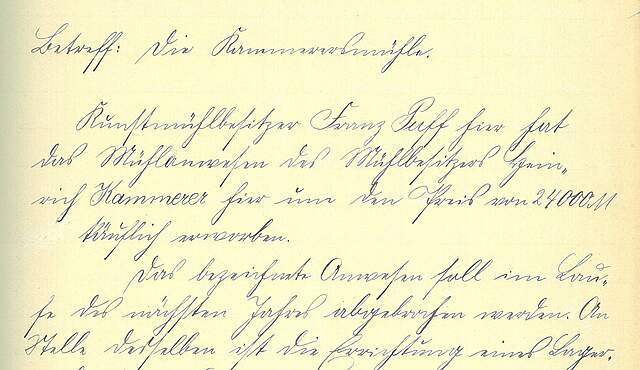 Betreff: Die Kammerersmühle.
Kunstmühlbesitzer Franz Paff hier hat
das Mühlanwesen des Mühlbesitzers Hein-
rich Kammerer hier um den Preis von 24000 M
käuflich erworben.
Das bezeichnete Anwesen soll im Lau-
fe des nächsten Jahres abgebrochen werden. An
Stelle desselben ist die Errichtung eines Lager-